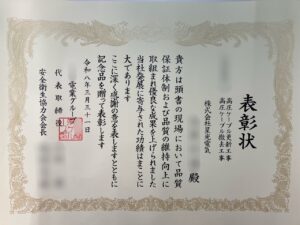 表彰状
高圧ケーブル更新工事
高圧ケーブル撤去工事
株式会社星光電気
殿
貴方は頭書の現場において品質
保証体制および品質の維持向上に
取組まれ優良な成果を上げられました
当社発展に寄された功績はまことに
大であります
ここに深く感謝の意を表しますとともに
記念品を贈って表彰します
令和八年三月三十一日
電業グループ
代表取締役
安全衛生協力会会長